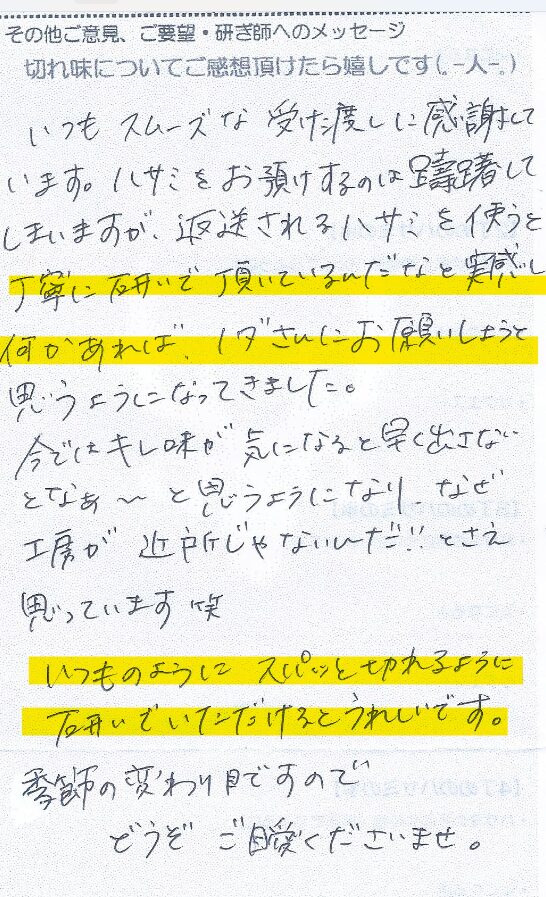 その他ご意見、ご要望・研ぎ師へのメッセージ
切れ味についてご感想頂けたら嬉しです(。-人-。)
いつも スムーズな 受け渡しに感謝して
います。ハサミをお預けするのは躊躇して
しまいますが、返送されるハサミを使うと
丁寧に研いで頂いているんだなと実感し
何かあれば、イダさんにお願いしようと
思うようになってきました。
今ではキレ味が気になると早く出さない
となぁ〜と思うようになり、なぜ
工房が 近所じゃないんだ!!とさえ
思っています笑
いつものように スパッと切れるように
研いでいただけるとうれしいです。
季節の変わり目ですので
どうぞ ご自愛くださいませ。